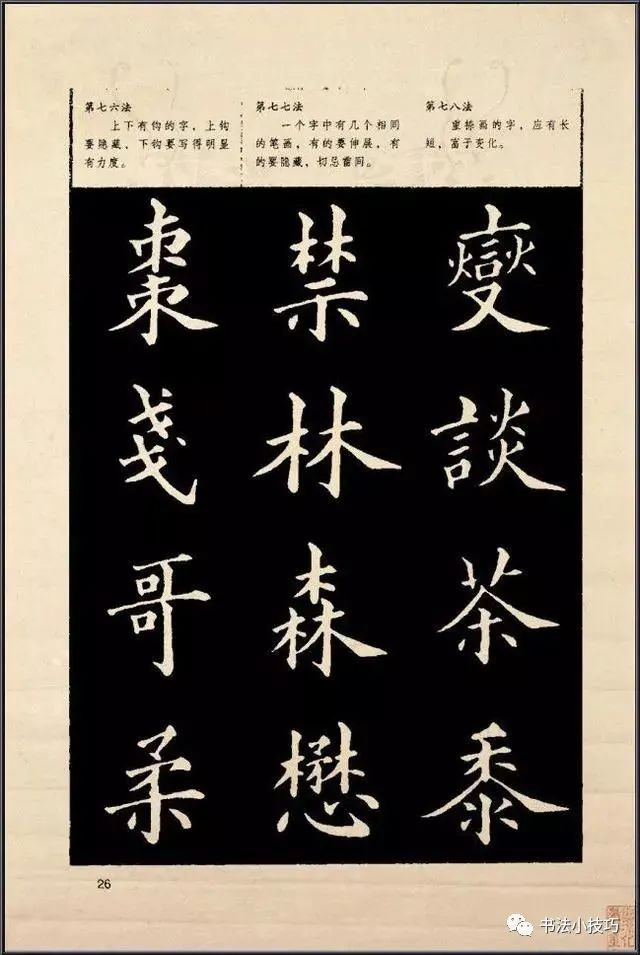 第七六法
上下有钩的字，上钩
要隐藏、下钩要写得明显
有力度。
第七七法
一个字中有几个相同
的笔画，有的要伸展，有
的要隐藏，切忌雷同。
第七八法
重捺画的字，应有长
短，富于变化。
棗 禁 燮
戔 林 談
哥 森 茶
柔 懋 黍
26
书法小技巧